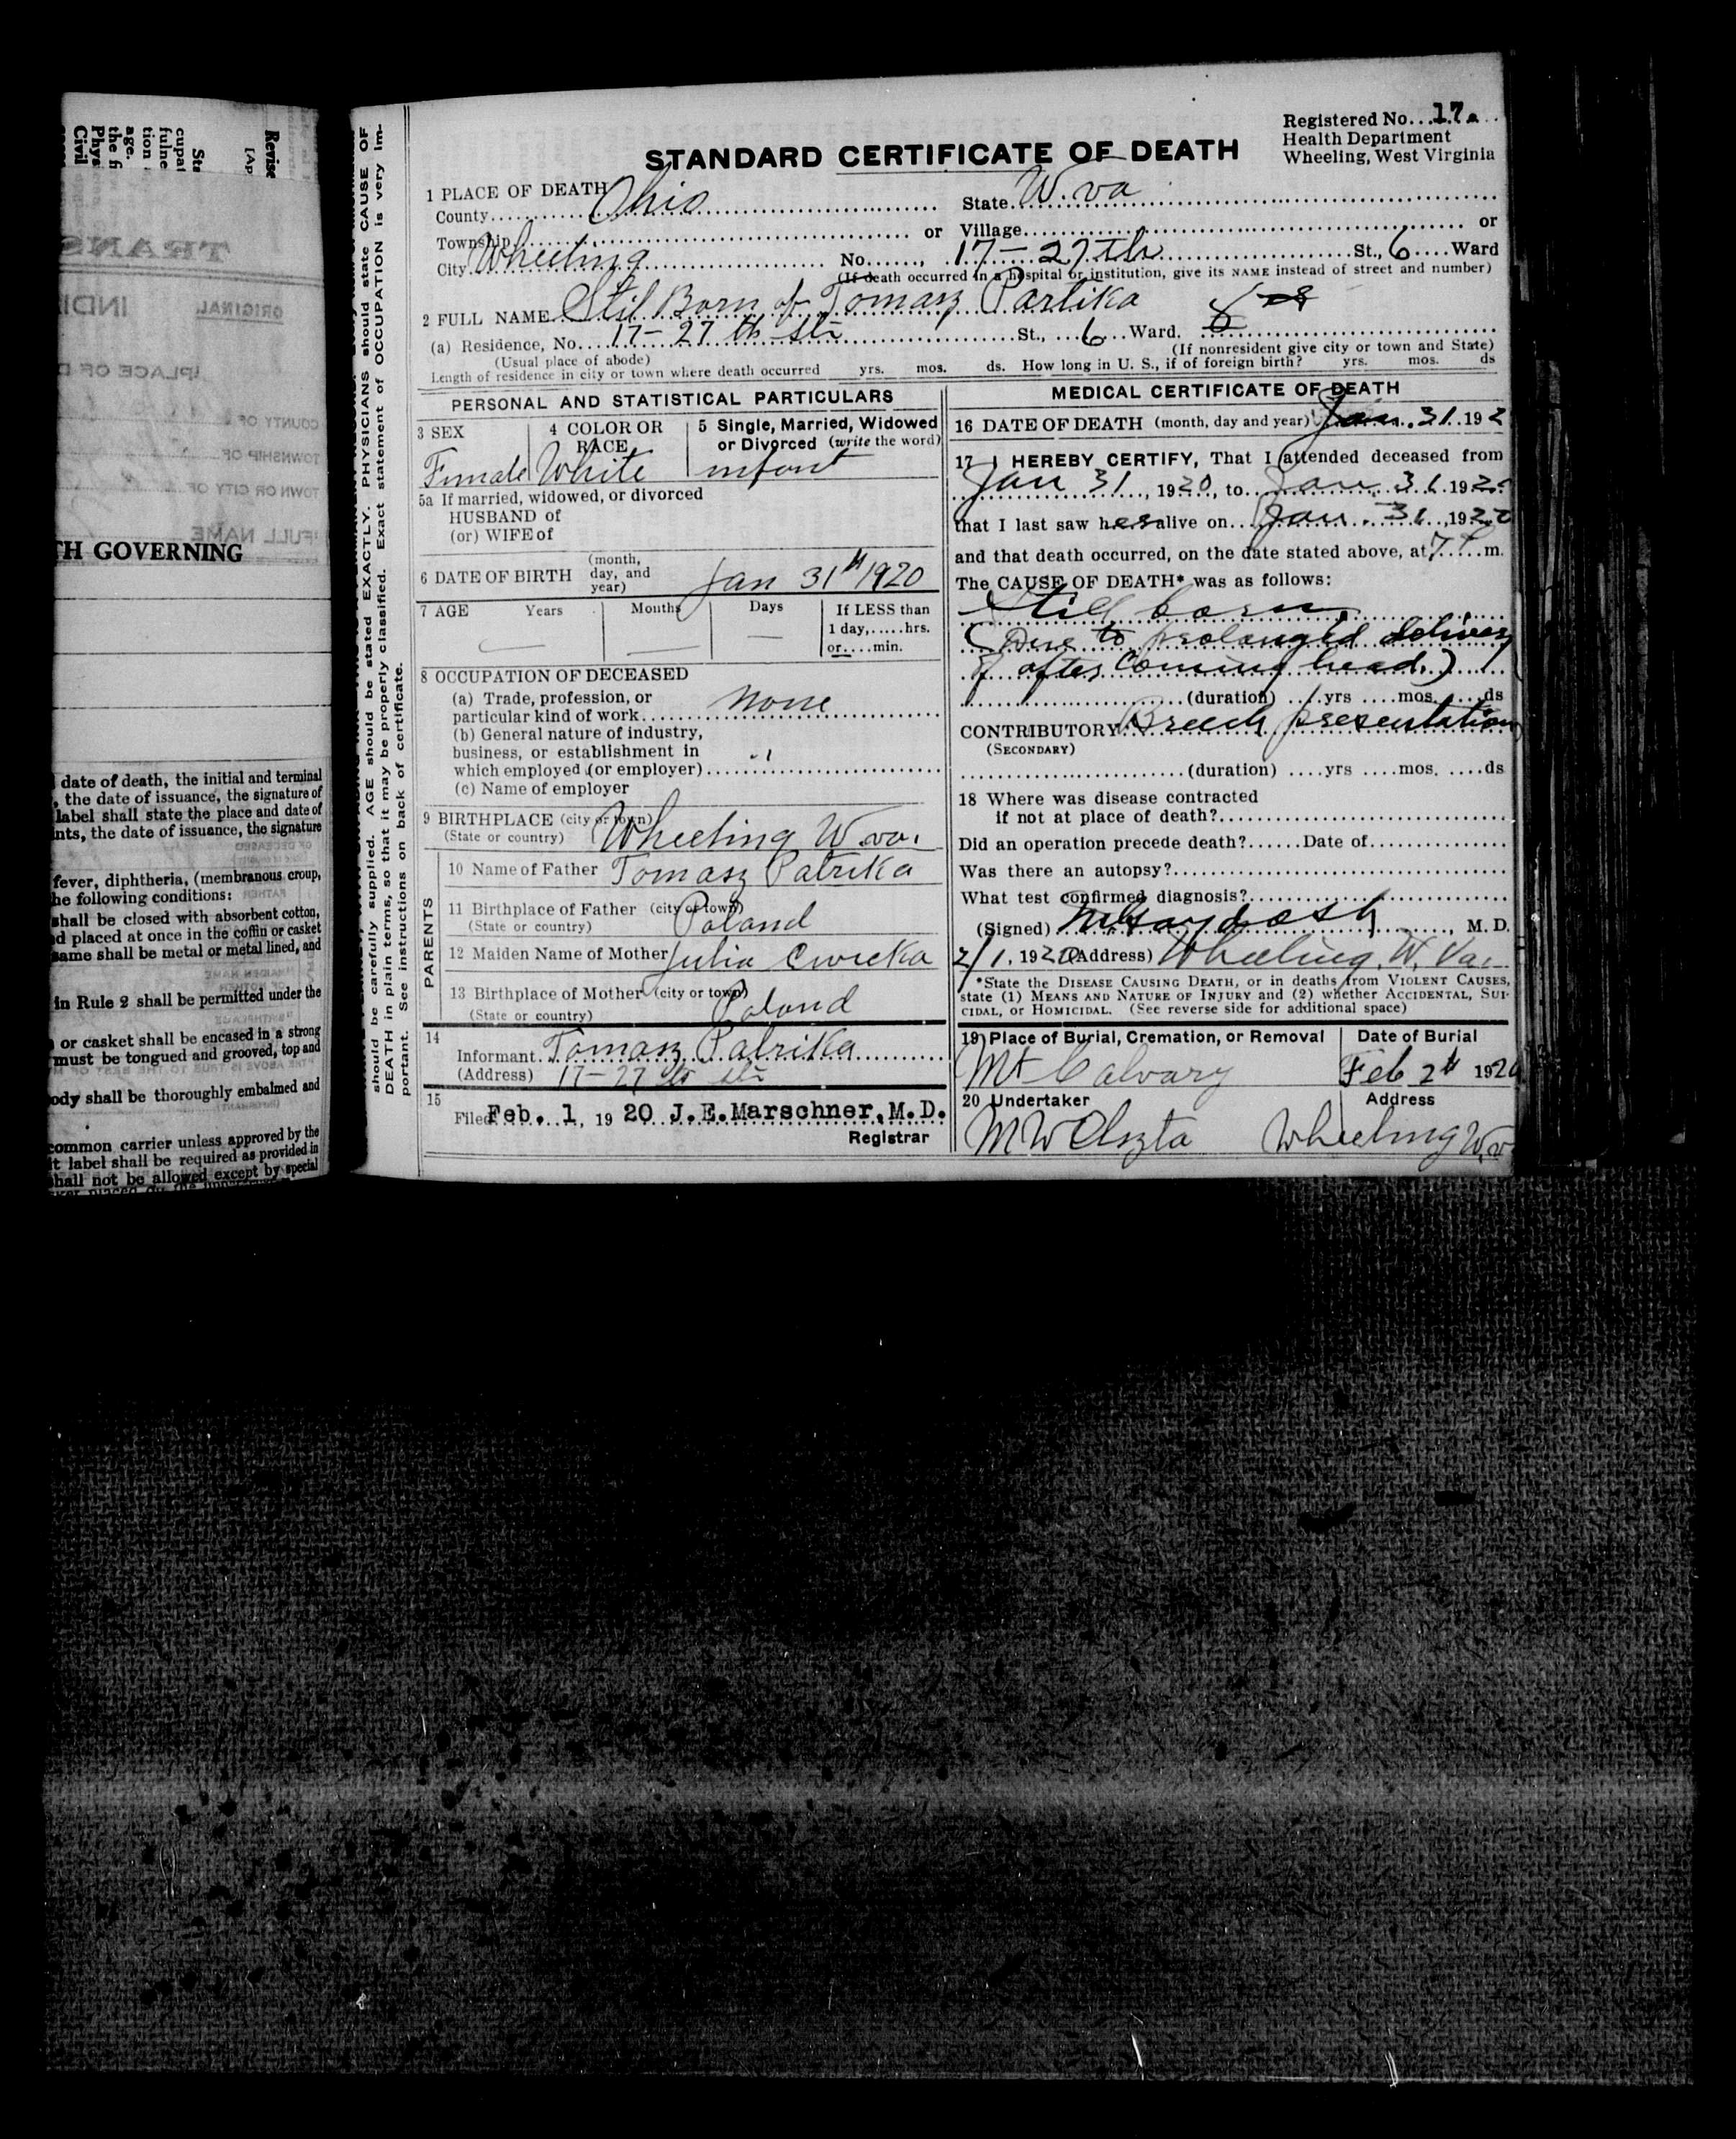 Registered No. 17.
Health Department
Wheeling, West Virginia
STANDARD CERTIFICATE OF DEATH
1 PLACE OF DEATH
County Ohio State W. va
Township or Village or
City Wheeling No. 17 - 27th St., 6 Ward
(If death occurred in a hospital or institution, give its NAME instead of street and number)
2 FULL NAME Stil Born of Tomasz Partika
(a) Residence, No. 17 - 27 th St. St., 6 Ward.
(Usual place of abode) (If nonresident give city or town and State)
Length of residence in city or town where death occurred yrs. mos. ds. How long in U. S., if of foreign birth? yrs. mos. ds
PERSONAL AND STATISTICAL PARTICULARS
3 SEX
Female
4 COLOR OR RACE
White
5 Single, Married, Widowed
or Divorced (write the word)
infant
5a If married, widowed, or divorced
HUSBAND of
(or) WIFE of
6 DATE OF BIRTH (month, day, and year) Jan 31th 1920
7 AGE Years Months Days If LESS than
1 day,.....hrs.
or....min.
8 OCCUPATION OF DECEASED
(a) Trade, profession, or
particular kind of work none
(b) General nature of industry,
business, or establishment in
which employed (or employer)
(c) Name of employer
9 BIRTHPLACE (city or town)
(State or country) Wheeling W. va.
PARENTS
10 Name of Father Tomasz Patrika
11 Birthplace of Father (city or town)
(State or country) Poland
12 Maiden Name of Mother Julia
13 Birthplace of Mother (city or town)
(State or country) Poland
14
Informant Tomasz Patrika
(Address) 17 - 27 th St.
15
Filed Feb. 1, 19 20 J.E.Marschner, M.D.
Registrar
MEDICAL CERTIFICATE OF DEATH
16 DATE OF DEATH (month, day and year) Jan. 31. 192
17 I HEREBY CERTIFY, That I attended deceased from
Jan 31, 1920, to Jan. 31 1920
that I last saw her alive on Jan. 31, 1920
and that death occurred, on the date stated above, at 7 P m.
The CAUSE OF DEATH* was as follows:
Still born.
(Due to prolonged delivery
of after coming head.)
(duration) yrs mos. ds
CONTRIBUTORY Breech presentation
(SECONDARY)
(duration) yrs mos. ds
18 Where was disease contracted
if not at place of death?
Did an operation precede death? Date of
Was there an autopsy?
What test confirmed diagnosis?
(Signed) , M. D.
2/1, 1920 (Address) Wheeling, W. Va.
*State the DISEASE CAUSING DEATH, or in deaths from VIOLENT CAUSES,
state (1) MEANS AND NATURE OF INJURY and (2) whether ACCIDENTAL, SUI-
CIDAL, or HOMICIDAL. (See reverse side for additional space)
19 Place of Burial, Cremation, or Removal
Mt Calvary
Date of Burial
Feb 2th 1920
20 Undertaker
M W Olszta
Address
Wheeling W. v
should be carefully supplied. AGE should be stated EXACTLY. PHYSICIANS should state CAUSE OF
DEATH in plain terms, so that it may be properly classified. Exact statement of OCCUPATION is very im-
portant. See instructions on back of certificate.
TH GOVERNING
date of death, the initial and terminal
, the date of issuance, the signature of
label shall state the place and date of
nts, the date of issuance, the signature
fever, diphtheria, (membranous croup,
he following conditions:
shall be closed with absorbent cotton,
d placed at once in the coffin or casket
same shall be metal or metal lined, and
in Rule 2 shall be permitted under the
or casket shall be encased in a strong
must be tongued and grooved, top and
ody shall be thoroughly embalmed and
common carrier unless approved by the
t label shall be required as provided in
shall not be allowed except by special